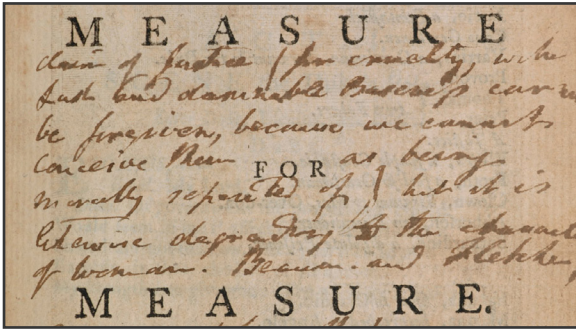 MEASURE
claim of Justice (for cruelty, with
lust and damnable Baseness cann
be forgiven, because we cannot
conceive them FOR as being
morally repented of) but it is
likewise degrading to the charact
of woman. Beaum. and Fletcher,
MEASURE.